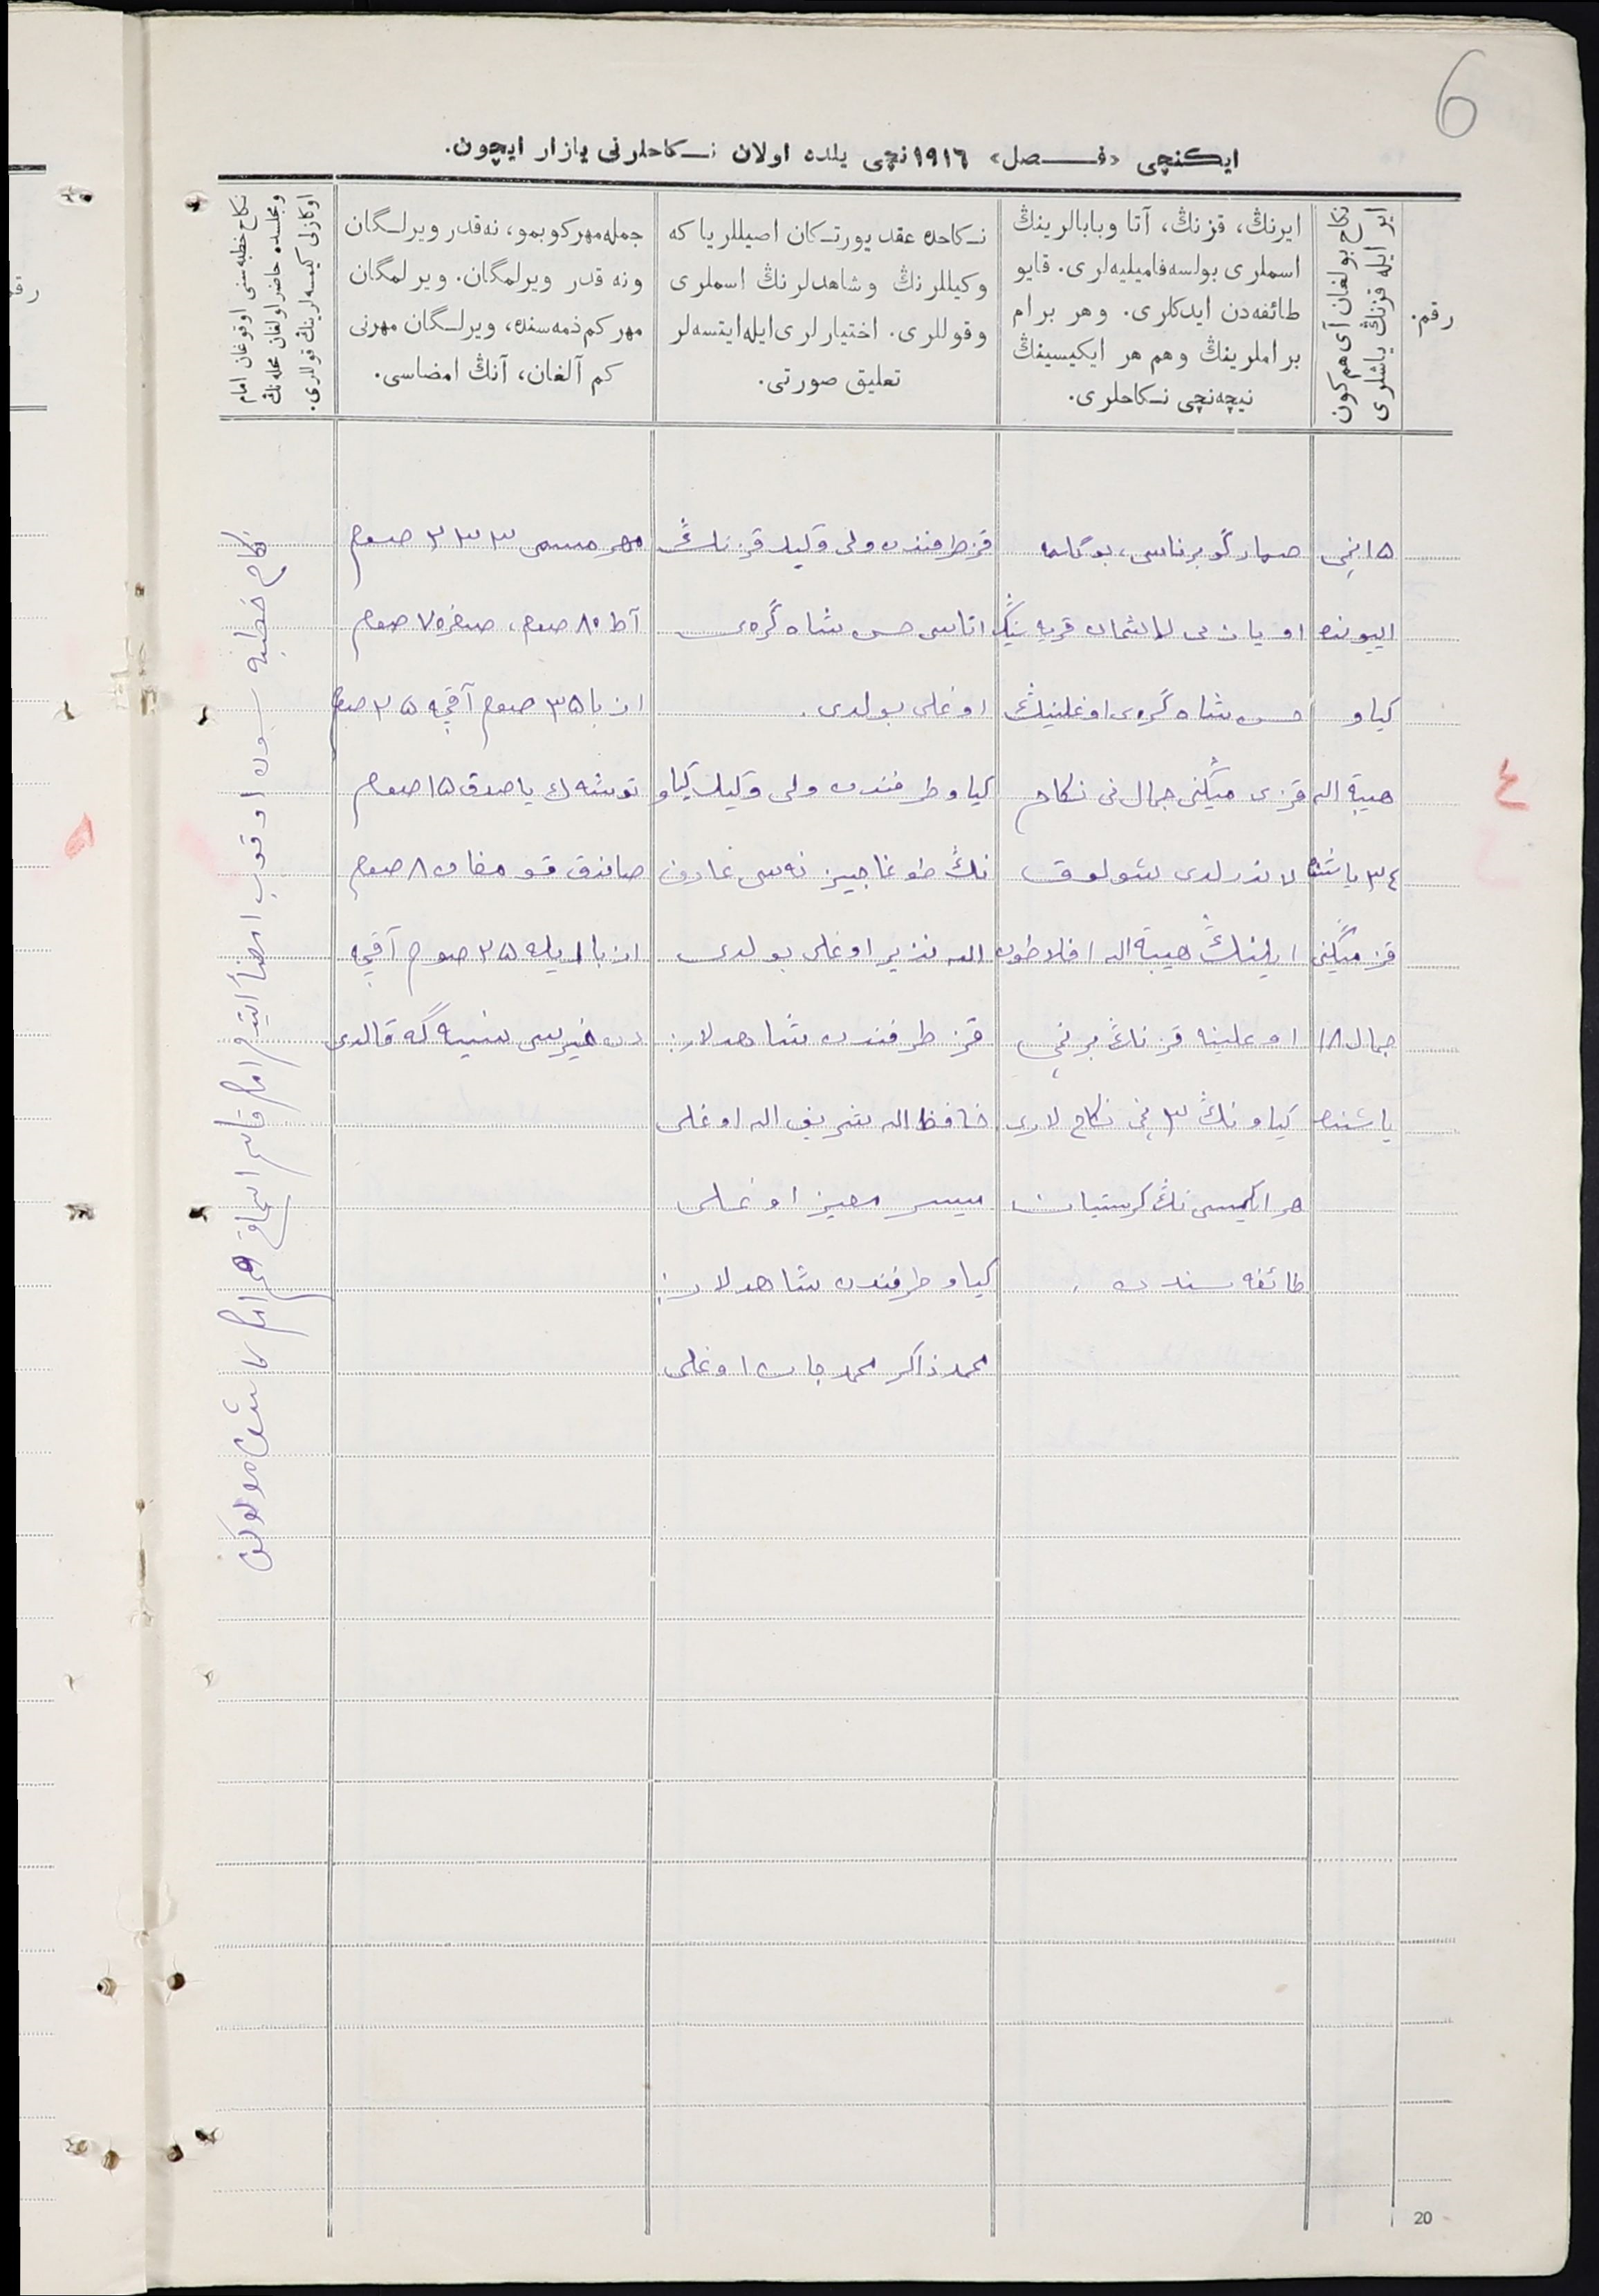 6
ایکنچی «فصل» ١٩١٦ نچی یلده اولان نکاحلرنی یازار ایچون.
رقم.
ایر ایله قزنڭ یاشلری
نکاح بولغان آی هم کون
ایرنڭ، قزنڭ، آتا وبابالرینڭ
اسملری بولسه فامیلیه‌لری. قایو
طائفه‌دن ایدکلری. وهر برام
براملرینڭ وهم هر ایکیسینڭ
نیچه‌نچی نکاحلری.
نکاحده عقد یورتکان اصیللر یا که
وکیللرنڭ وشاهدلرنڭ اسملری
وقوللری. اختیارلری ایله ایتسه‌لر
تعلیق صورتی.
جمله مهر کوبمو، نه‌قدر ویرلگان
ونه قدر ویرلمگان. ویرلمگان
مهر کم ذمه‌سنده، ویرلگان مهرنی
کم آلغان، آنڭ امضاسی.
نکاح خطبه‌سنی اوقوغان امام
ومجلسده حاضر اولغان محله‌نڭ
اوکازلی کیمسه‌لرینڭ قوللری.
١٥ نچی
ایيونده
کیاو
هیبة الله
٣٤ یاشنده
قز میڭلی
جمال ١٨
یاشنده
صمار گوبرناسی، بوگلمه
اویازی قریه‌سینڭ
حسن شاه گره‌ی اوغلینڭ
قزی میڭلی جمال نی نکاح
لاندرلدی شولوق
ایلینڭ هیبة الله افلاطون
اوغلینه قزنڭ برنچی
کیاونڭ ٣ نچی نکاح لاری
هر ایکیسی نڭ کرستیان
طائفه سندن.
قز طرفندن ولی وکیل قزنڭ
اتاسی حسن شاه گره‌ی
اوغلی بولدی.
کیاو طرفندن ولی وکیل کیاو
نڭ طوغا جیزنه‌سی عارف
الله نذیر اوغلی بولدی
قز طرفندن شاهدلار:
حافظ الله شریف الله اوغلی
میسر معیز اوغلی
کیاو طرفندن شاهدلار:
محمد ذاکر محمد جان اوغلی
مهر مسمی ٣٣٣ صوم
آط ٨٠ صوم، صغره ٧٠ صوم
ان با ٣٥ صوم آقچه ٢٥ صوم
توشه‌ك یاصدق ١٥ صوم
صاندق قومغان ٨ صوم
ان با ایله ٢٥ صوم آقچه
دن غیریسی نسیه گه قالدی
نکاح خطبه سن اوقوب امضا ایتدم امام
٤
20